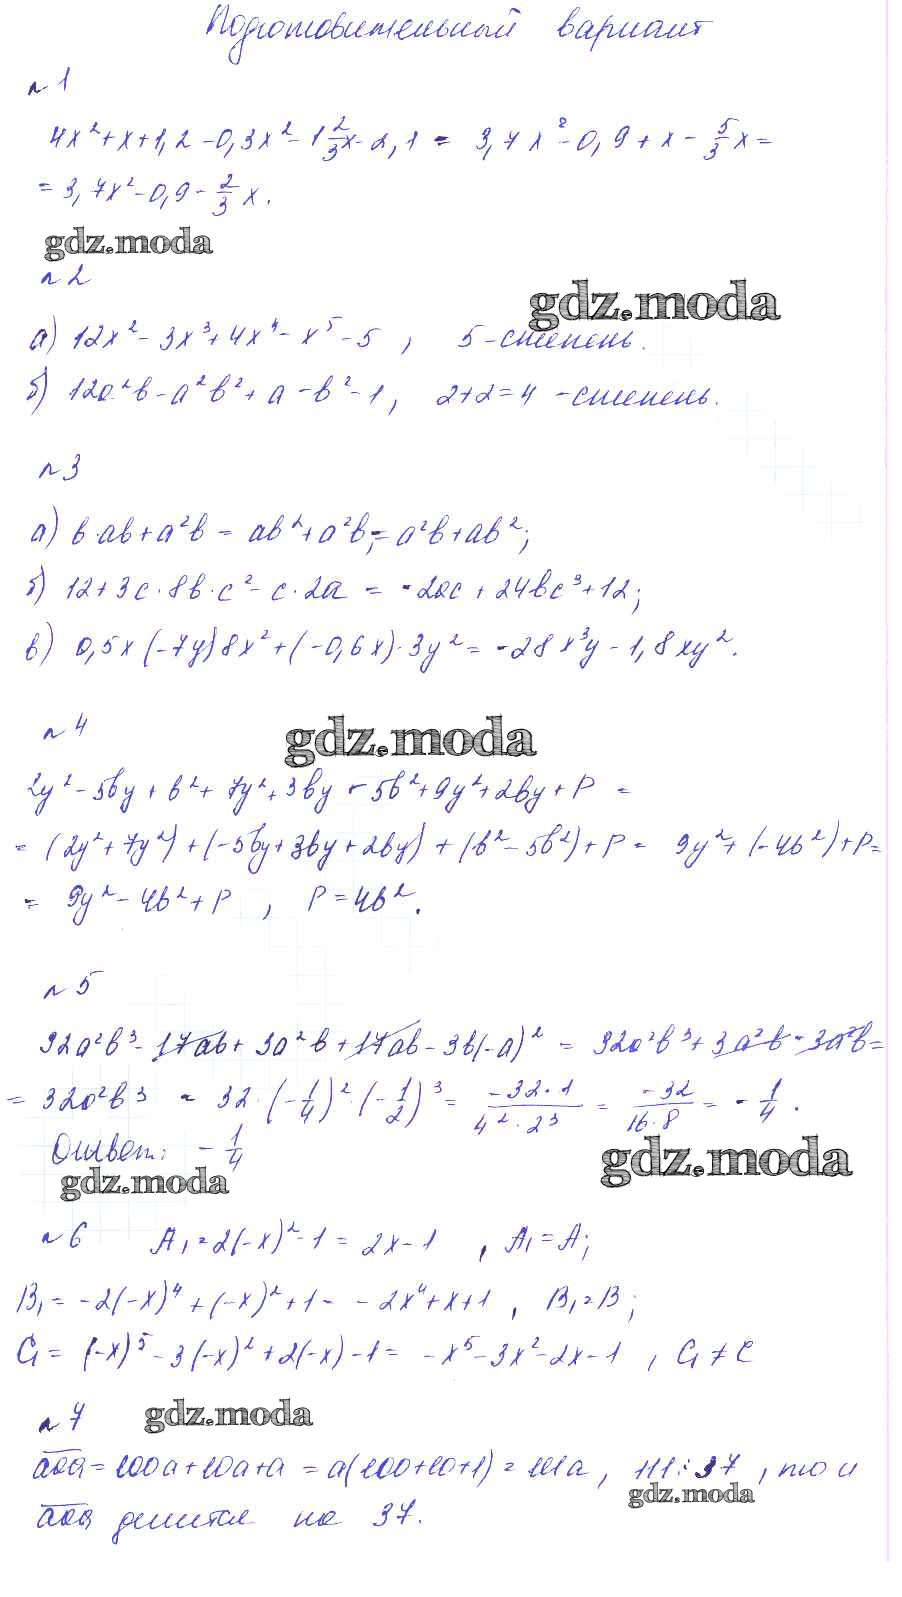 Подготовительный вариант
n 1
4x² + x + 1,2 - 0,3x² - 1 2/3 x - 2,1 = 3,7x² - 0,9 + x - 5/3 x =
= 3,7x² - 0,9 - 2/3 x.
gdz.moda
n 2
gdz.moda
а) 12x² - 3x³ + 4x⁴ - x⁵ - 5 , 5 - степень.
б) 12a²b - a²b² + a - b² - 1 , 2+2=4 - степень.
n 3
а) b·ab + a²b = ab² + a²b; = a²b + ab²;
б) 12 + 3c·8b·c² - c·2a = -2ac + 24bc³ + 12;
в) 0,5x(-7y)8x² + (-0,6x)·3y² = -28x³y - 1,8xy².
n 4
gdz.moda
2y² - 5by + b² + 7y² + 3by - 5b² + 9y² + 2by + P =
= (2y² + 7y²) + (-5by + 3by + 2by) + (b² - 5b²) + P = 9y² + (-4b²) + P =
= 9y² - 4b² + P , P = 4b².
n 5
32a²b³ - 17ab + 3a²b + 17ab - 3b(-a)² = 32a²b³ + 3a²b - 3a²b =
= 32a²b³ = 32·(-1/4)²·(-1/2)³ = -32·1/4²·2³ = -32/16·8 = -1/4.
Ответ: -1/4
gdz.moda
gdz.moda
n 6 A₁ = 2(-x)² - 1 = 2x - 1 , A₁ = A;
B₁ = -2(-x)⁴ + (-x)² + 1 = -2x⁴ + x + 1 , B₁ = B;
C₁ = (-x)⁵ - 3(-x)² + 2(-x) - 1 = -x⁵ - 3x² - 2x - 1 , C₁ ≠ C
n 7
gdz.moda
aaa = 100a + 10a + a = a(100+10+1) = 111a , 111 ⋮ 37 , то и
gdz.moda
aaa делится на 37.